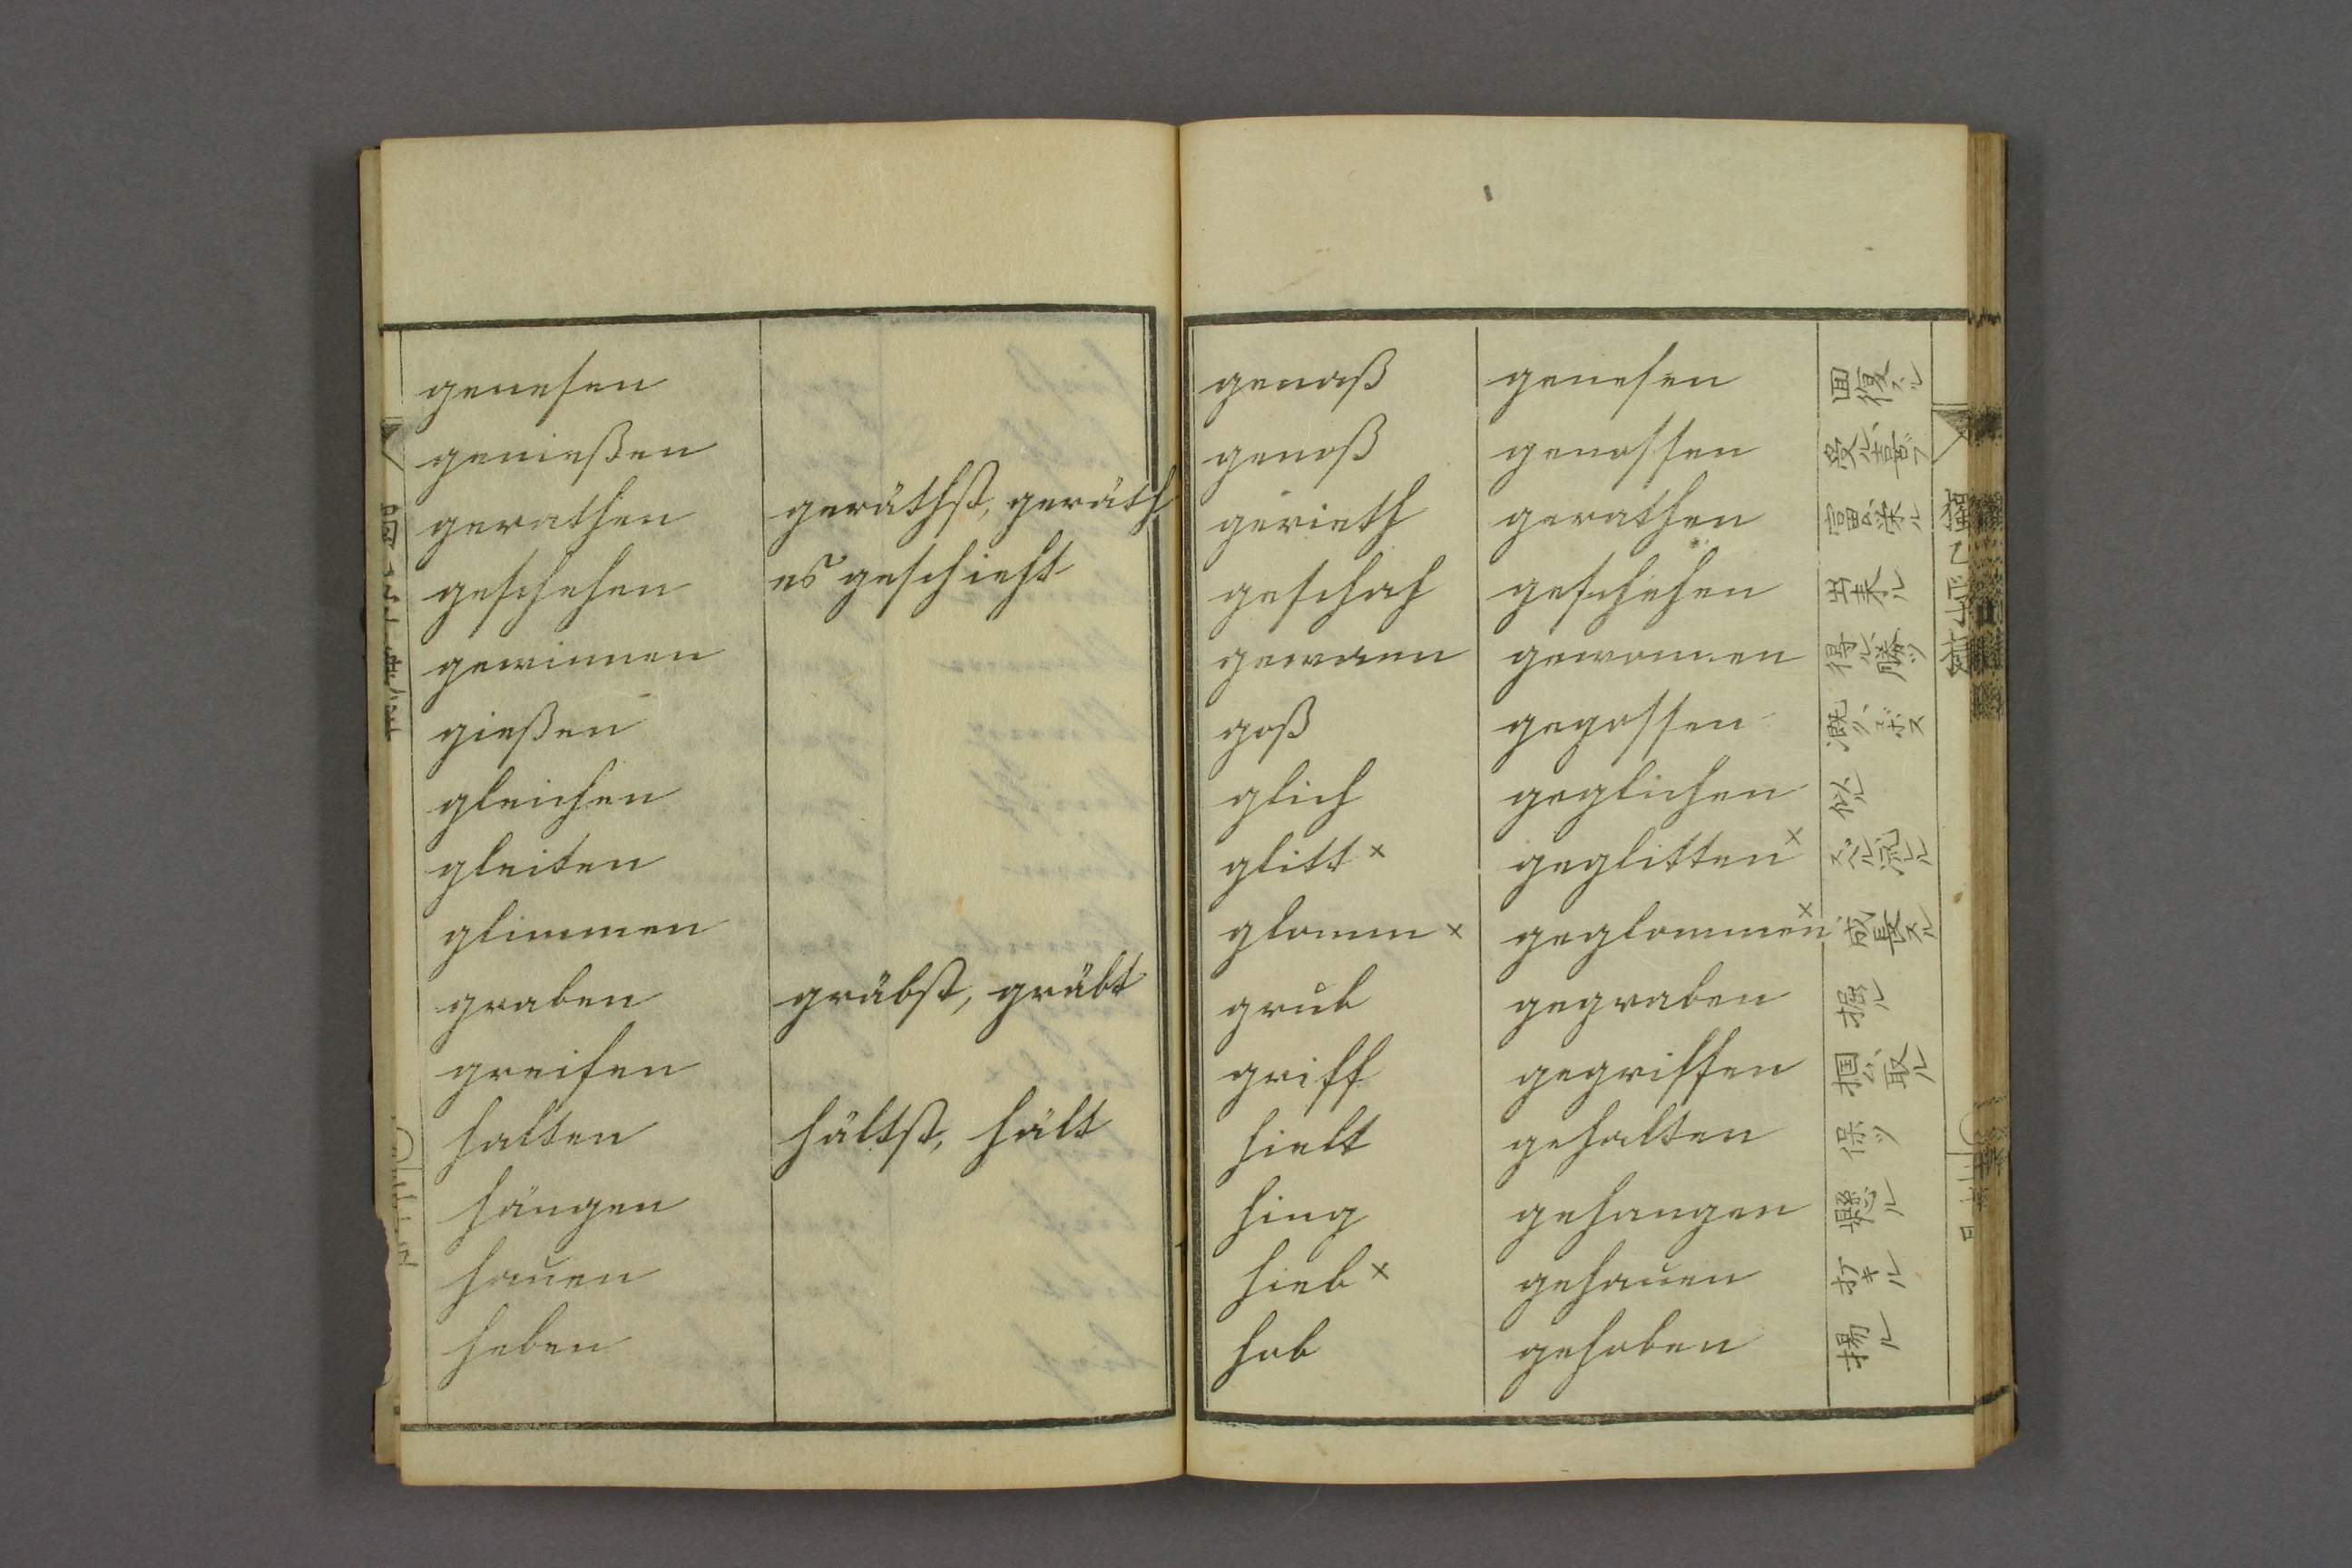 genesen genaß genesen 回復スル
genießen genoß genossen 受ル喜ブ
gerathen geräthst, geräth gerieth gerathen 富ム栄ル
geschehen es geschieht geschah geschehen 出来ル
gewinnen gewann gewonnen 得ル勝ツ
gießen goß gegossen 漑ク
gleichen glich geglichen 似ル
gleiten glitt × geglitten ×
glimmen glomm × geglommen × 成長スル
graben gräbst, gräbt grub gegraben 掘ル
greifen griff gegriffen 掴ム取ル
halten hältst, hält hielt gehalten 保ツ
hängen hing gehangen 懸ル
hauen hieb × gehauen 打キル
heben hob gehoben 揚ル